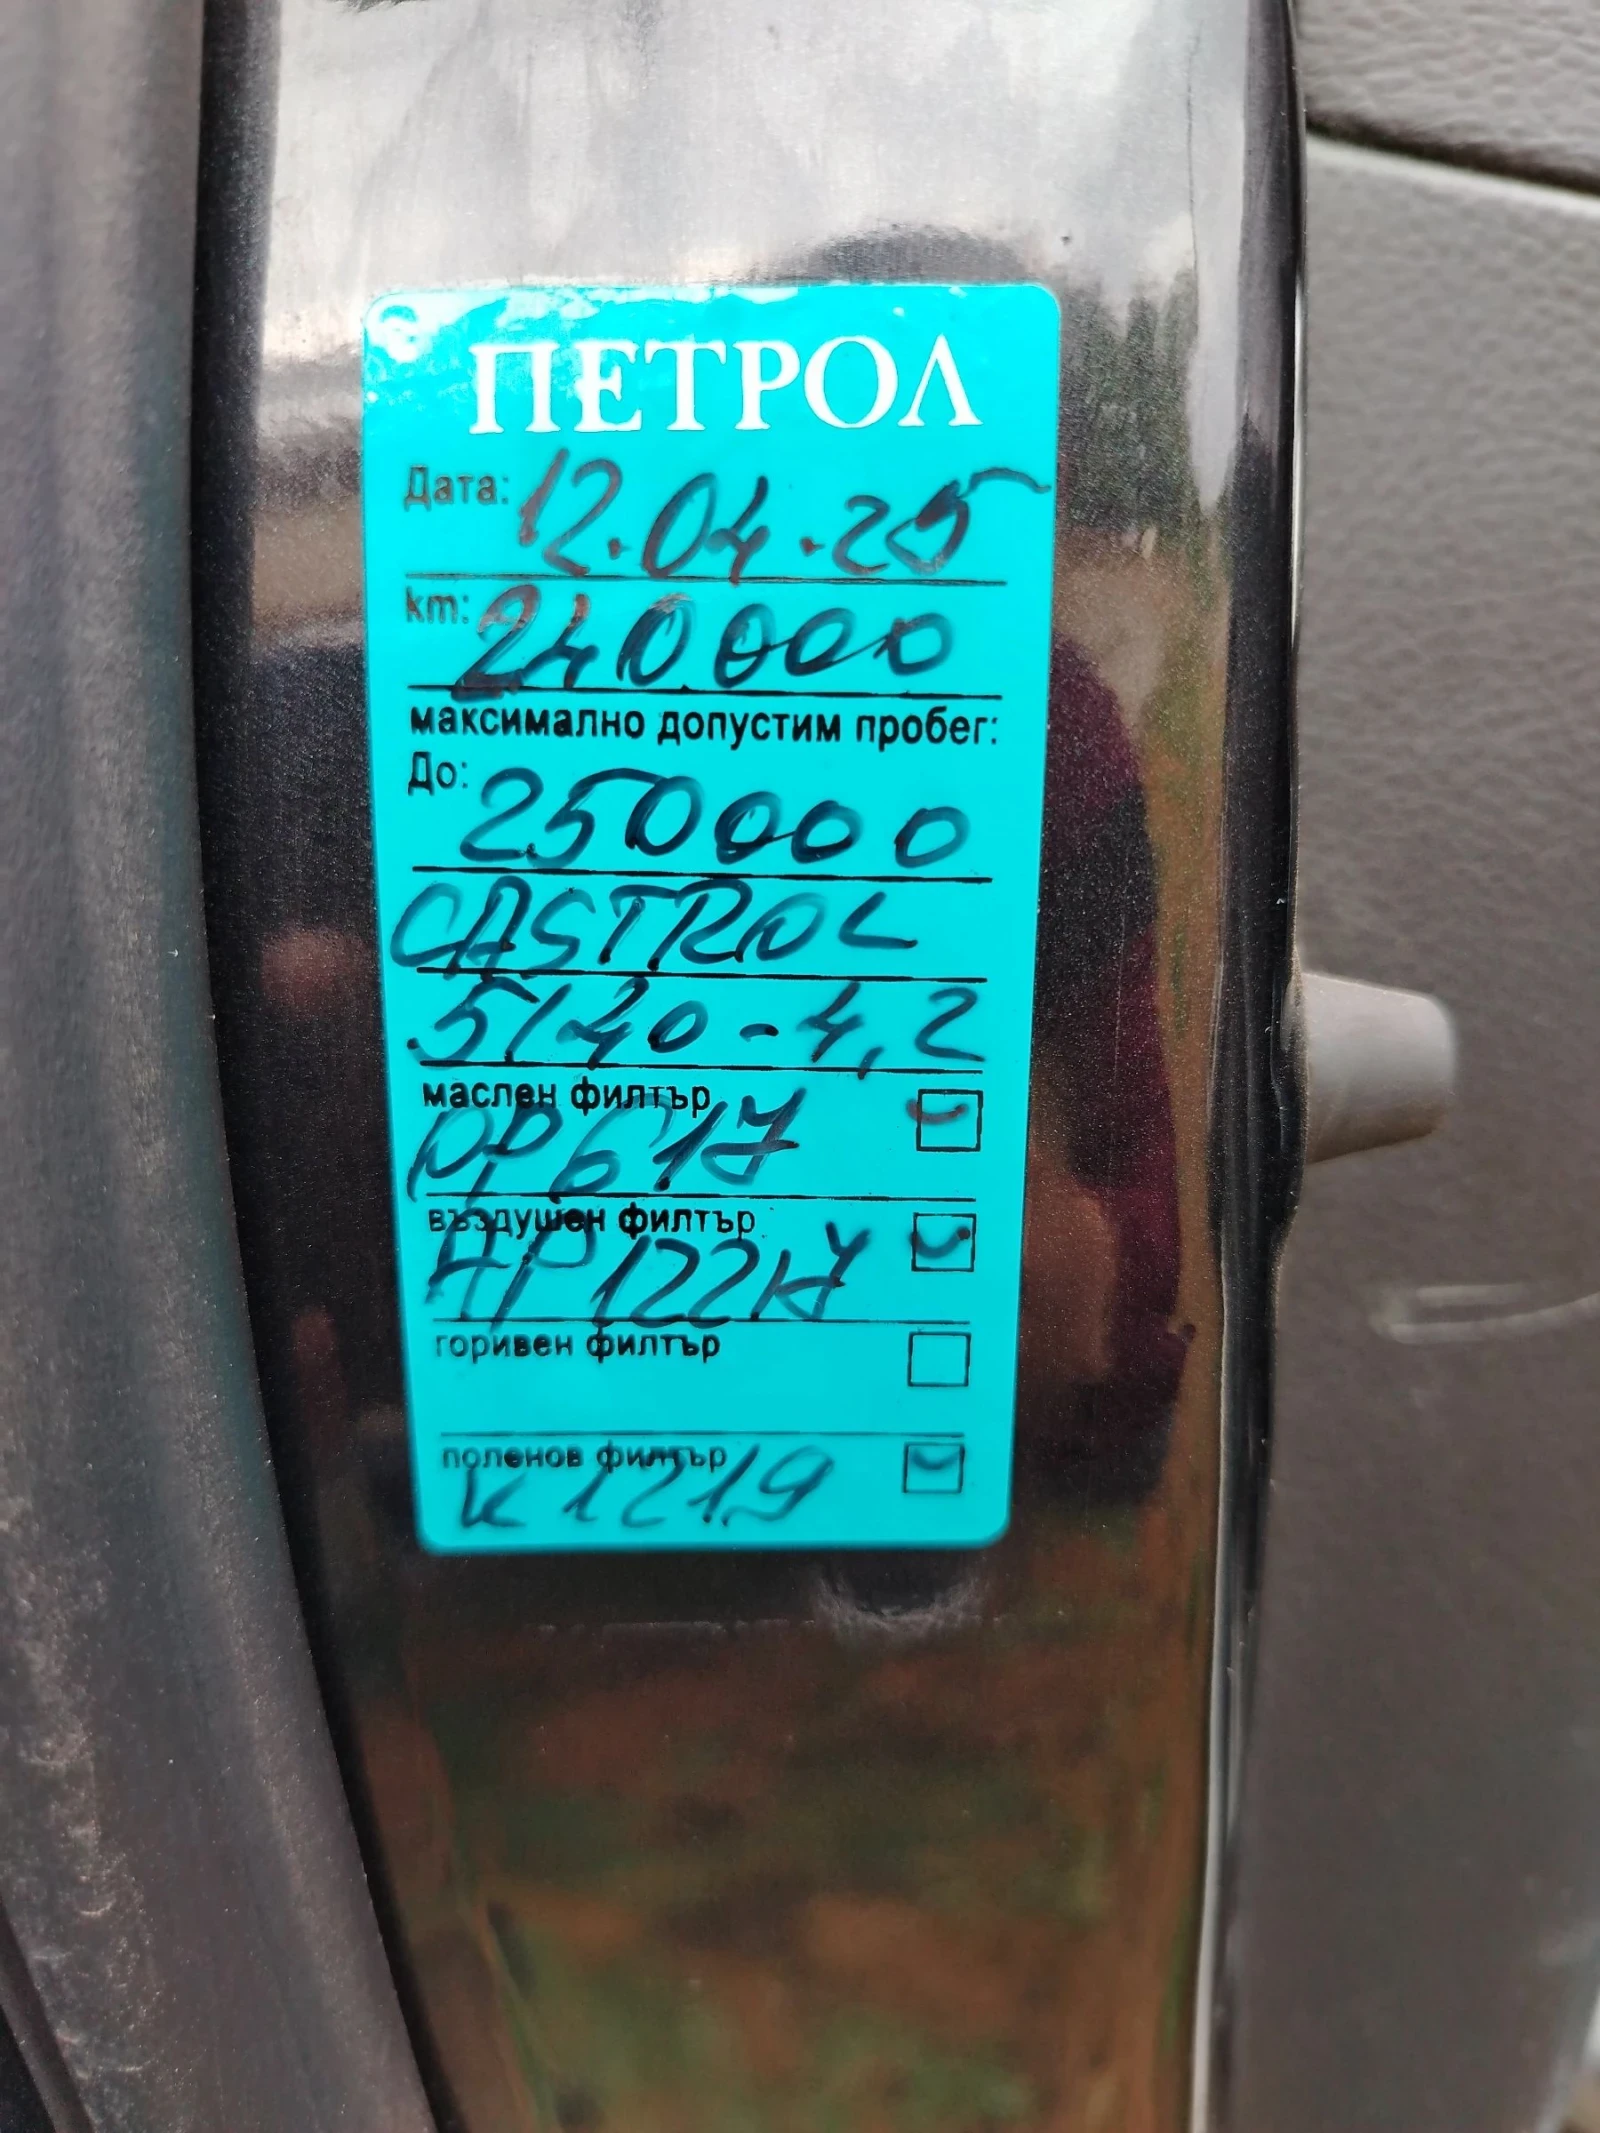 ПЕТРОЛ
Дата: 12.04.25
km: 240.000
максимално допустим пробег:
До: 250000
CASTROL
5/40-4,2
маслен филтър
OP617
въздушен филтър
AP 122/7
горивен филтър
поленов филтър
K1219